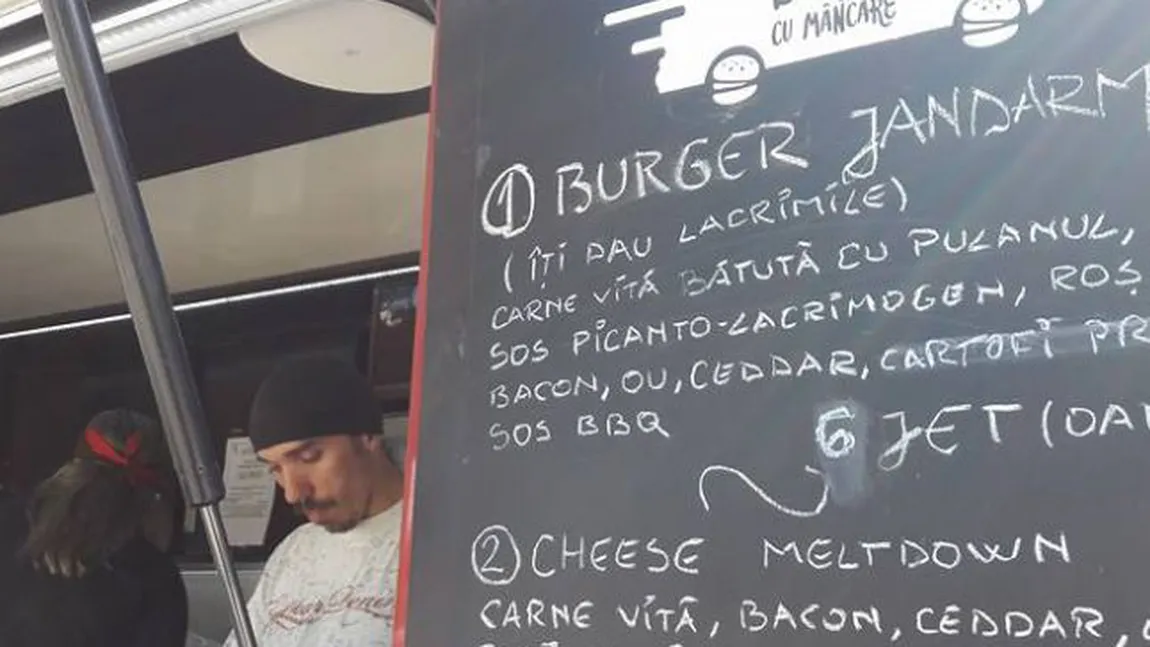 CU MÂNCARE
1 BURGER JANDARM
(ÎȚI DAU LACRIMILE)
CARNE VITĂ BĂTUTĂ CU PULANUL,
SOS PICANTO-LACRIMOGEN, ROȘ
BACON, OU, CEDDAR, CARTOFI PR
SOS BBQ
6 JET (DA
2 CHEESE MELTDOWN
CARNE VITĂ, BACON, CEDDAR,